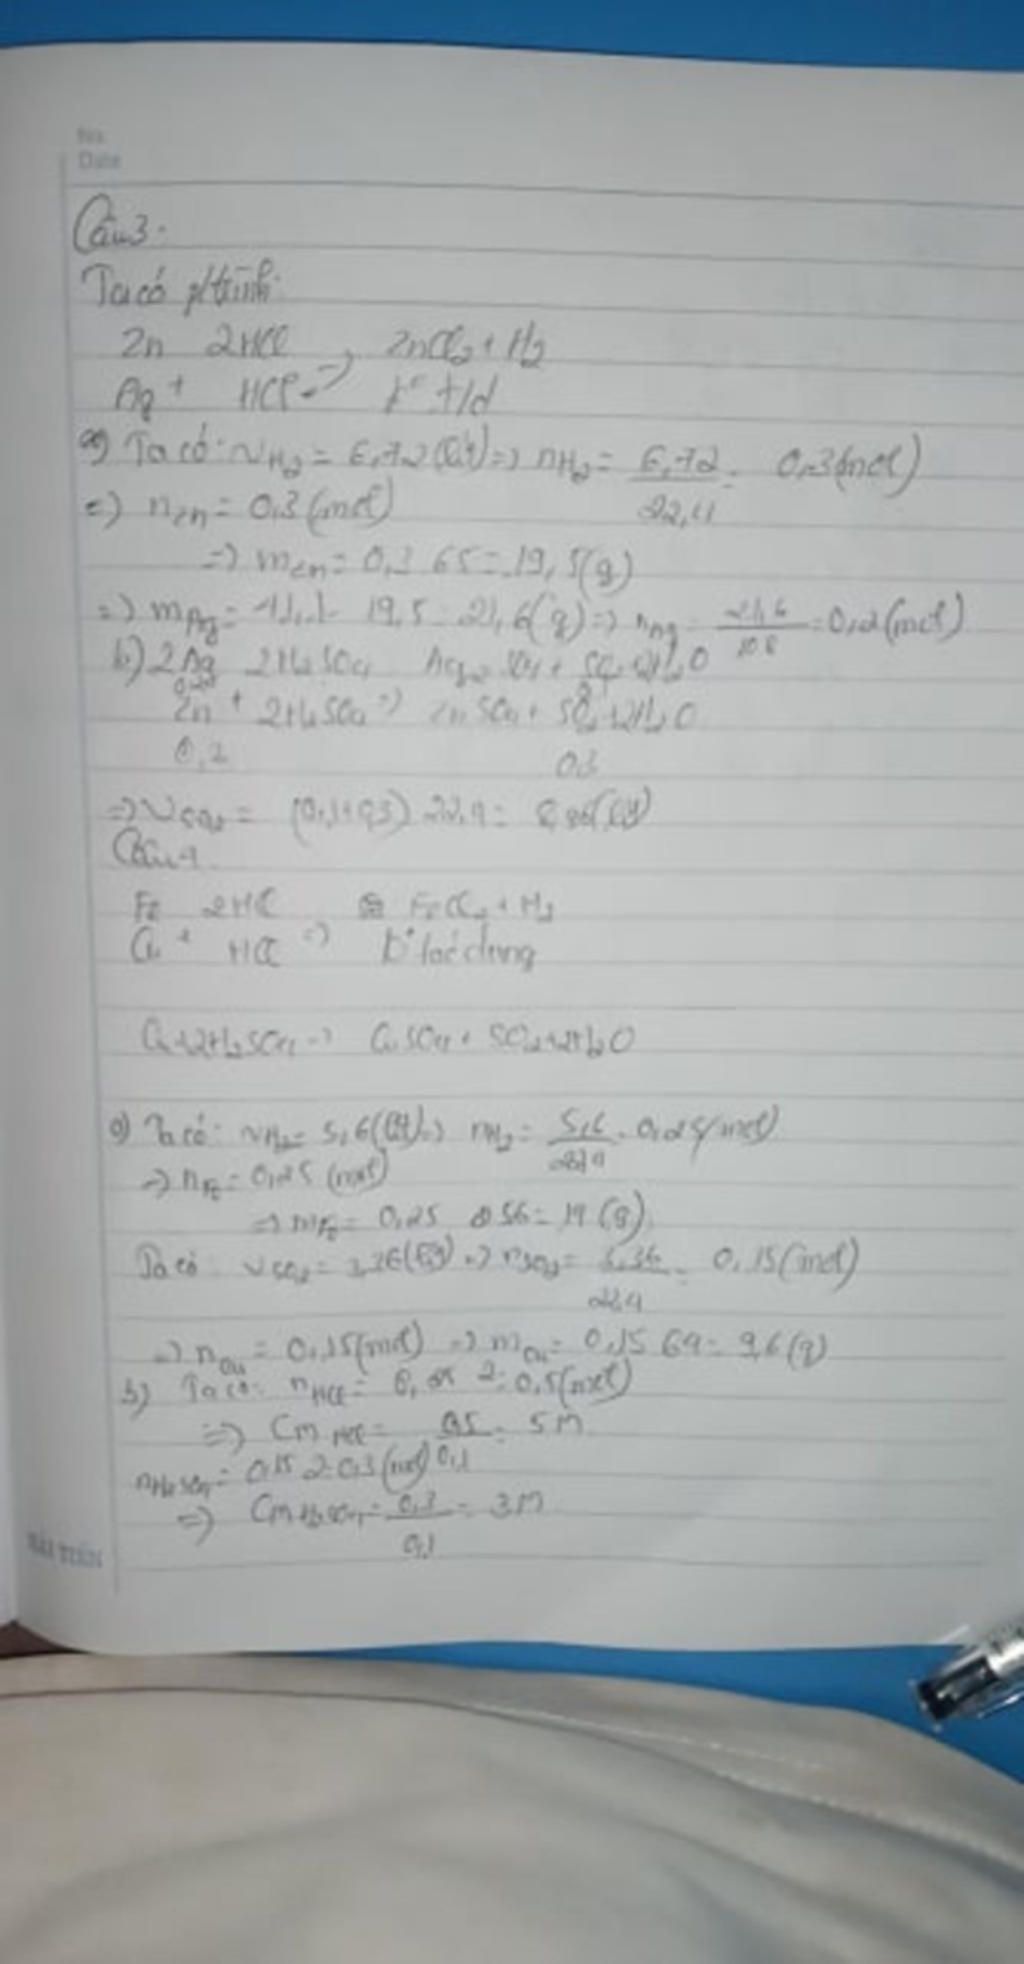 No.
Date
Câu 3.
Ta có ptrình:
Zn 2HCl ZnCl2 + H2
Ag + HCl => k° t/d
a) Ta có: VH2 = 6,72 (lít) => nH2 = 6,72/22,4 = 0,3 (mol)
=> nZn = 0,3 (mol)
=> mZn = 0,3 65 = 19,5 (g)
=> mAg = 41,1 - 19,5 = 21,6 (g) => nAg = 21,6/108 = 0,2 (mol)
b) 2Ag 2H2SO4 Ag2SO4 + SO2 + 2H2O
Zn + 2H2SO4 => ZnSO4 + SO2 + 2H2O
0,3
=> VSO2 = (0,1+0,3) 22,4 = 8,96 (lít)
Câu 4.
Fe 2HCl FeCl2 + H2
Cu + HCl => k° tác dụng
Cu + 2H2SO4 => CuSO4 + SO2 + 2H2O
a) Ta có: VH2 = 5,6 (lít) => nH2 = 5,6/22,4 = 0,25 (mol)
=> nFe = 0,25 (mol)
=> mFe = 0,25 56 = 14 (g)
Ta có: VSO2 = 3,36 (lít) => nSO2 = 3,36/22,4 = 0,15 (mol)
=> nCu = 0,15 (mol) => mCu = 0,15 64 = 9,6 (g)
b) Ta có: nHCl = 0,25 2 = 0,5 (mol)
=> Cm HCl = 0,5/0,1 = 5M
nH2SO4 = 0,15 2 = 0,3 (mol)
=> Cm H2SO4 = 0,3/0,1 = 3M
HẢI TIẾN